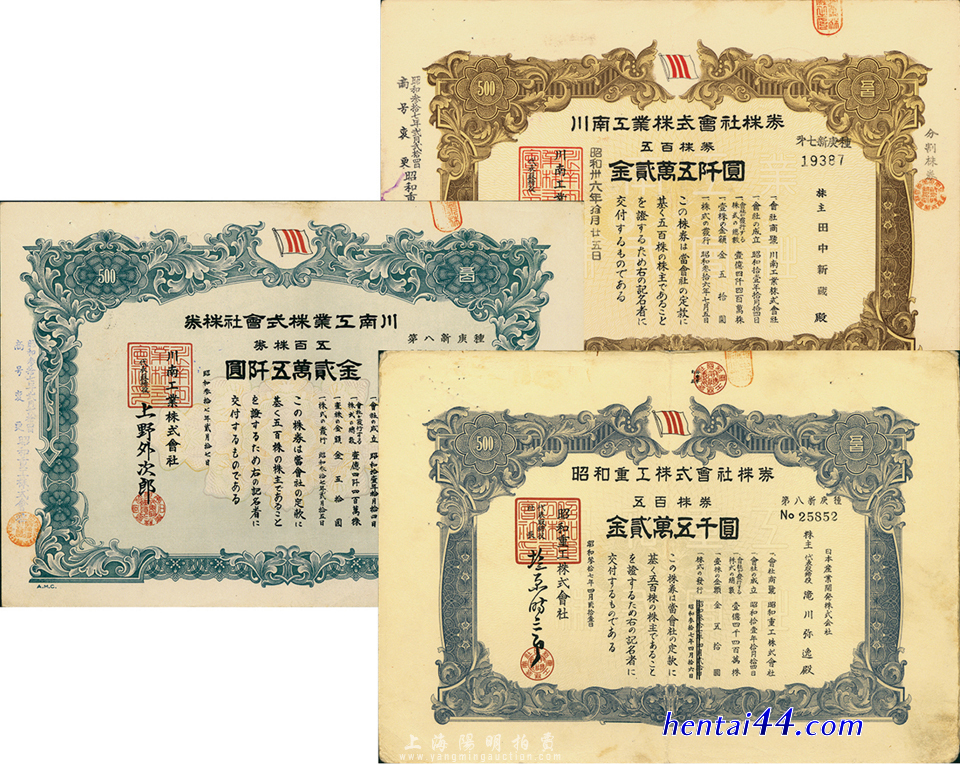 500
五百
川南工業株式會社株券
五百株券
金貳萬五阡圓
種庚新七第
19387
株主 田中新蔵 殿
一會社商號 川南工業株式會社
一會社の成立 昭和拾壹年拾月拾四日
一會社の發行する株式の總數 壹億四阡四百萬株
一壹株の金額 金五拾圓
一株式の發行 昭和参拾六年七月五日
この株券は當會社の定款に
基く五百株の株主であること
を證するため右の記名者に
交付するものである
昭和卅六年拾月廿五日
川南工業
商号変更
昭和重
分割株
500
五百
川南工業株式會社株券
五百株券
金貳萬五阡圓
種庚新八第
一會社の成立 昭和拾壹年拾月拾四日
一會社の發行する株式の總數 壹億四阡四百萬株
一壹株の金額 金五拾圓
一株式の發行 昭和参拾七年貳月拾五日
この株券は當會社の定款に
基く五百株の株主であること
を證するため右の記名者に
交付するものである
昭和参拾七年貳月拾七日
川南工業株式會社
代表取締役
上野外次郎
商号変更
A.M.C.
500
五百
昭和重工株式會社株券
五百株券
金貳萬五千圓
種庚新八第
No 25852
日本産業開発株式会社
株主 代表取締役 滝川弥逸殿
一會社商號 昭和重工株式會社
一會社の成立 昭和拾壹年拾月拾四日
一會社の發行する株式の總數 壹億四千四百萬株
一壹株の金額 金五拾圓
一株式の發行 昭和参拾七年四月拾六日
この株券は當會社の定款に
基く五百株の株主であること
を證するため右の記名者に
交付するものである
昭和参拾七年四月貳拾壹日
昭和重工株式會社
代表取締役
上海陽明拍賣
www.yangmingauction.com
hentai44.com